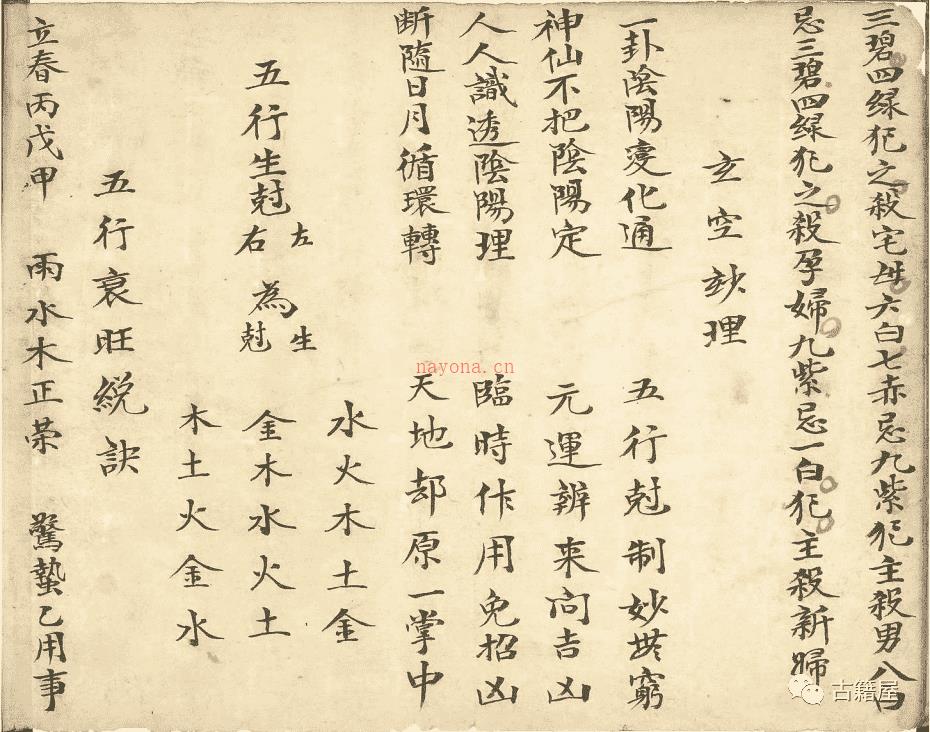 三碧四緑犯之殺宅母六白七赤忌九紫犯主殺男八白
忌三碧四緑犯之殺孕婦九紫忌一白犯主殺新婦
玄空玅理
一卦陰陽变化通 五行尅制妙無窮
神仙不把陰陽定 元運辨来向吉凶
人人識透陰陽理 臨時作用免招凶
断隨日月循環轉 天地却原一掌中
五行生尅 左右 為 生尅
水火木土金
金木水火土
木土火金水
五行衰旺総訣
立春丙戊甲 雨水木正荣 驚蟄乙用事
nayona.cn
古籍屋